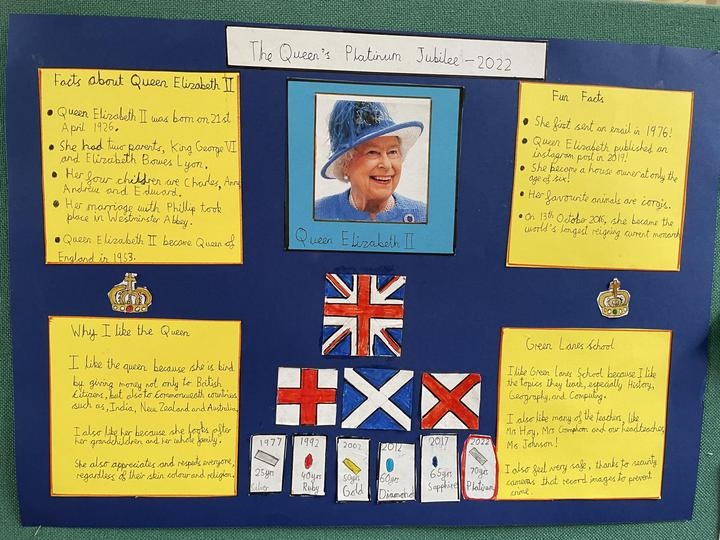 The Queen's Platinum Jubilee - 2022
Facts about Queen Elizabeth II
• Queen Elizabeth II was born on 21st
April 1926.
• She had two parents, King George VI
and Elizabeth Bowes Lyon.
• Her four children are Charles, Anne
Andrew and Edward.
• Her marriage with Phillip took
place in Westminster Abbey.
• Queen Elizabeth II became Queen of
England in 1953.
Queen Elizabeth II
Fun Facts
• She first sent an email in 1976!
• Queen Elizabeth published an
instagram post in 2019!
• She became a house owner at only the
age of six!
• Her favourite animals are corgis.
• On 13th October 2016, she became the
world's longest reigning current monarch
Why I like the Queen
I like the queen because she is kind
by giving money not only to British
citizens, but also to commonwealth countries
such as, India, New Zealand and Australia.
I also like her because she looks after
her grandchildren and her whole family.
She also appreciates and respects everyone,
regardless of their skin colour and religion.
1977
25yrs
Silver
1992
40yrs
Ruby
2002
50yrs
Gold
2012
60yrs
Diamond
2017
65yrs
Sapphire
2022
70yrs
Platinum
Green Lanes School
I like Green Lanes School because I like
the topics they teach, especially History,
Geography, and Computing.
I also like many of the teachers, like
Mr Hoy, Mrs and our headteacher,
Ms Johnson!
I also feel very safe, thanks to security
cameras that record images to prevent
crime.